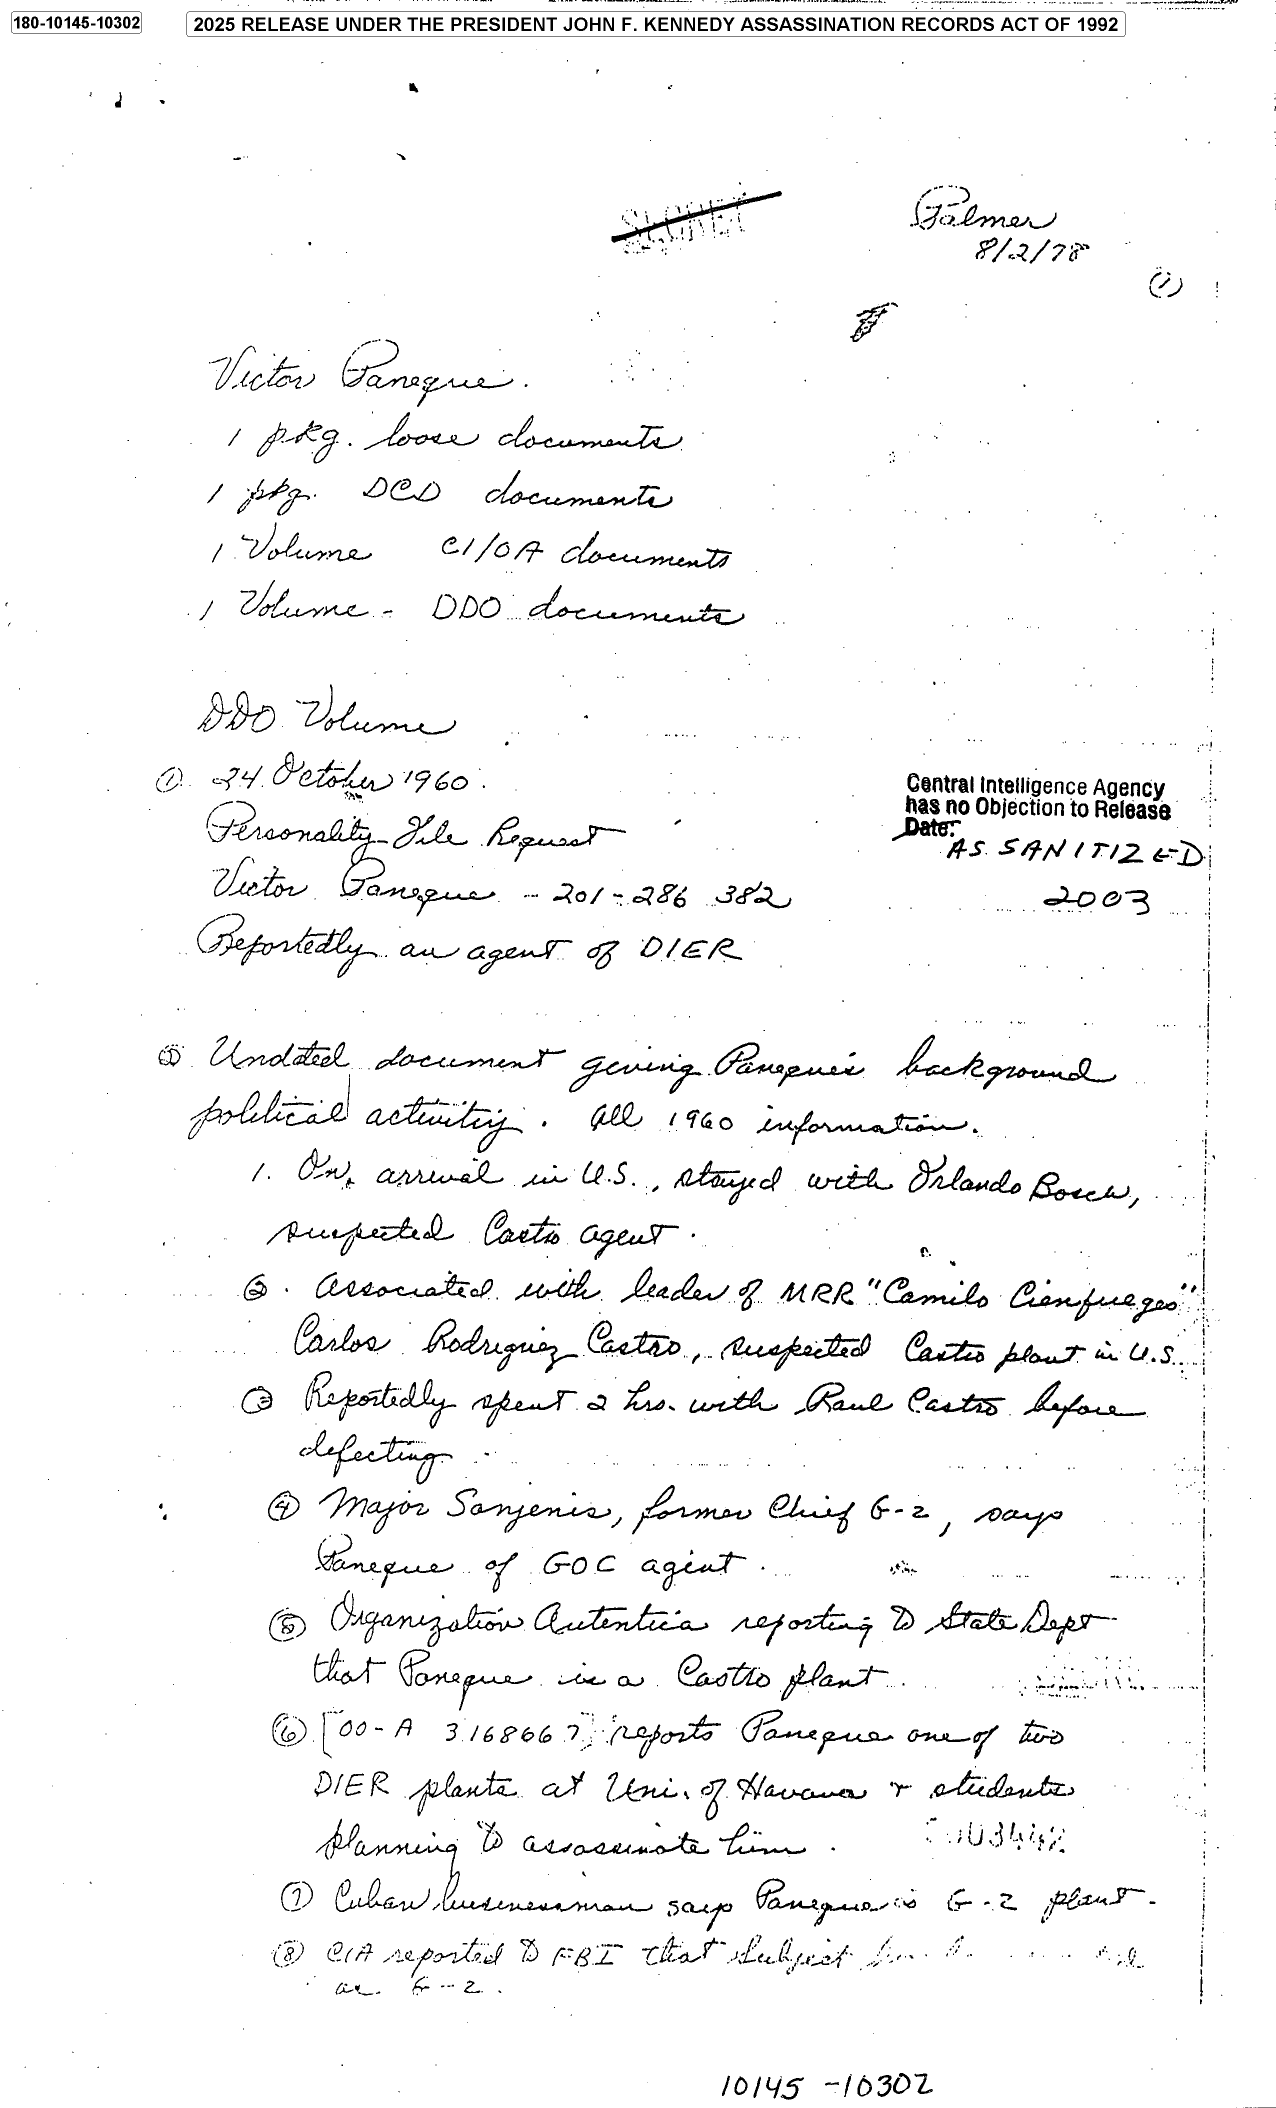 180-10145-10302
2025 RELEASE UNDER THE PRESIDENT JOHN F. KENNEDY ASSASSINATION RECORDS ACT OF 1992
SECRET
Palmer
8/2/78
(1)
Victor Paneque.
1 pkg. loose documents
1 pkg. DCD documents
1 Volume CI/OA documents
1 Volume - DDO documents
DDO Volume
① 24 October 1960.
Personality File Request
Victor Paneque - 201-286 382
Reportedly an agent of DIER
Central Intelligence Agency
has no Objection to Release
Date:
AS SANITIZED
2003
Undated document giving Paneque's background
political activity. All 1960 information.
1. On arrival in U.S., stayed with Orlando Bosch,
suspected Castro agent.
②. Associated with leader of MRR "Camilo Cienfuegos"
Carlos Rodriguez Castro, suspected Castro plant in U.S.
③ Reportedly spent 2 hrs. with Raul Castro before
defecting
④ Major Sanjenis, former Chief G-2, says
Paneque of GOC agent.
⑤ Organization Autentica reporting to State Dept
that Paneque is a Castro plant.
⑥ [00-A 3168667] reports Paneque one of two
DIER plants at Uni. of Havana + students
planning to assassinate him.
⑦ Cuban businessman says Paneque is G-2 plant.
⑧ CIA reported to FBI that Subject
as G-2.
10145-10302